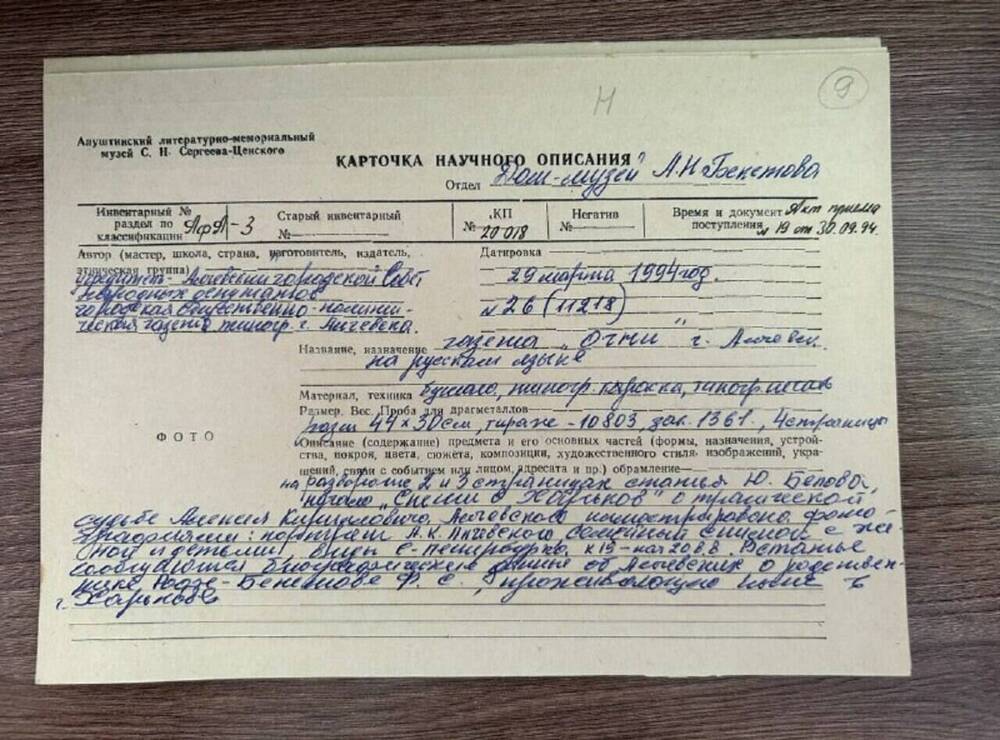 9
Н
Алуштинский литературно-мемориальный
музей С. Н. Сергеева-Ценского
КАРТОЧКА НАУЧНОГО ОПИСАНИЯ
Отдел Дом-музей А.Н Бекетова
Инвентарный №
раздел по
классификации АфА-3
Старый инвентарный
№
КП
№ 20 018
Негатив
№
Время и документ Акт приема
поступления № 19 от 30.09.94.
Автор (мастер, школа, страна, изготовитель, издатель,
этническая группа)
учредитель - Алчевский городской Совет
народных депутатов
городская общественно-полити-
ческая газета типогр. г. Алчевска.
Датировка
29 марта 1994 год.
№ 26 (11218)
Название, назначение газета „Огни" г. Алчевск
на русском языке
Материал, техника бумага, типогр. краска, типогр. печать
Размер. Вес. Проба для драгметаллов
разм 44 х 30 см, тираж - 10803, зак. 1361, 4 страницы
ФОТО
Описание (содержание) предмета и его основных частей (формы, назначения, устрой-
ства, покроя, цвета, сюжета, композиции, художественного стиля, изображений, укра-
шений, связи с событием или лицом, адресата и пр.) обрамление
на развороте 2 и 3 страницах статья Ю. Белова,
начало о трагической
судьбе Алексея Кирилловича Алчевского иллюстрирована фото-
графиями: портрет А.К. Алчевского семейный снимок с же-
ной и детьми, виды С-Петербурга к. 19 - нач 20 в.в. В статье
сообщаются биографические данные об Алчевских о родствен-
Ф. С., проживающую ныне в
г. Харькове